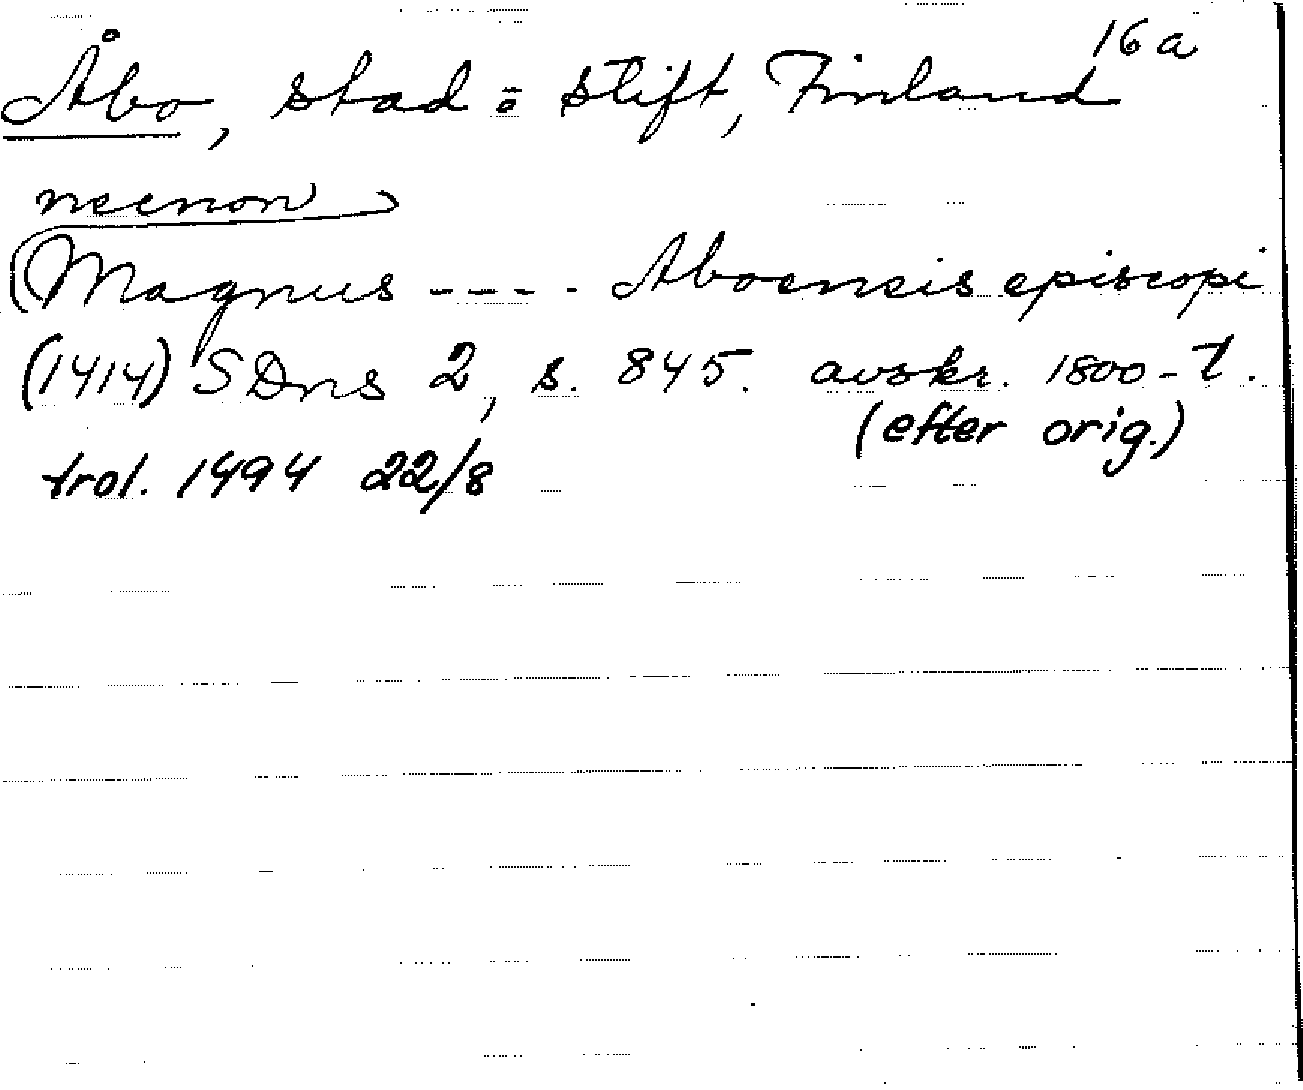 16 a
Åbo, stad o. stift, Finland
necnon
(Magnus ---- Aboensis episcopi
(1414) SDns 2, s. 845. avskr. 1800-t.
(efter orig.)
trol. 1494 22/8